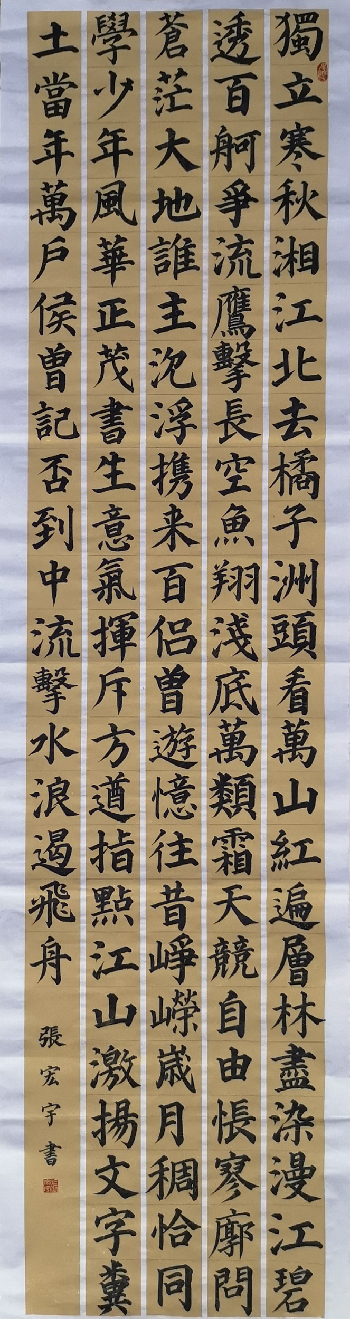 獨立寒秋湘江北去橘子洲頭看萬山紅遍層林盡染漫江碧
透百舸爭流鷹擊長空魚翔淺底萬類霜天競自由悵寥廓問
蒼茫大地誰主沉浮携来百侶曾遊憶往昔崢嶸歲月稠恰同
學少年風華正茂書生意氣揮斥方遒指點江山激揚文字糞
土當年萬戶侯曾記否到中流擊水浪遏飛舟
張宏宇書